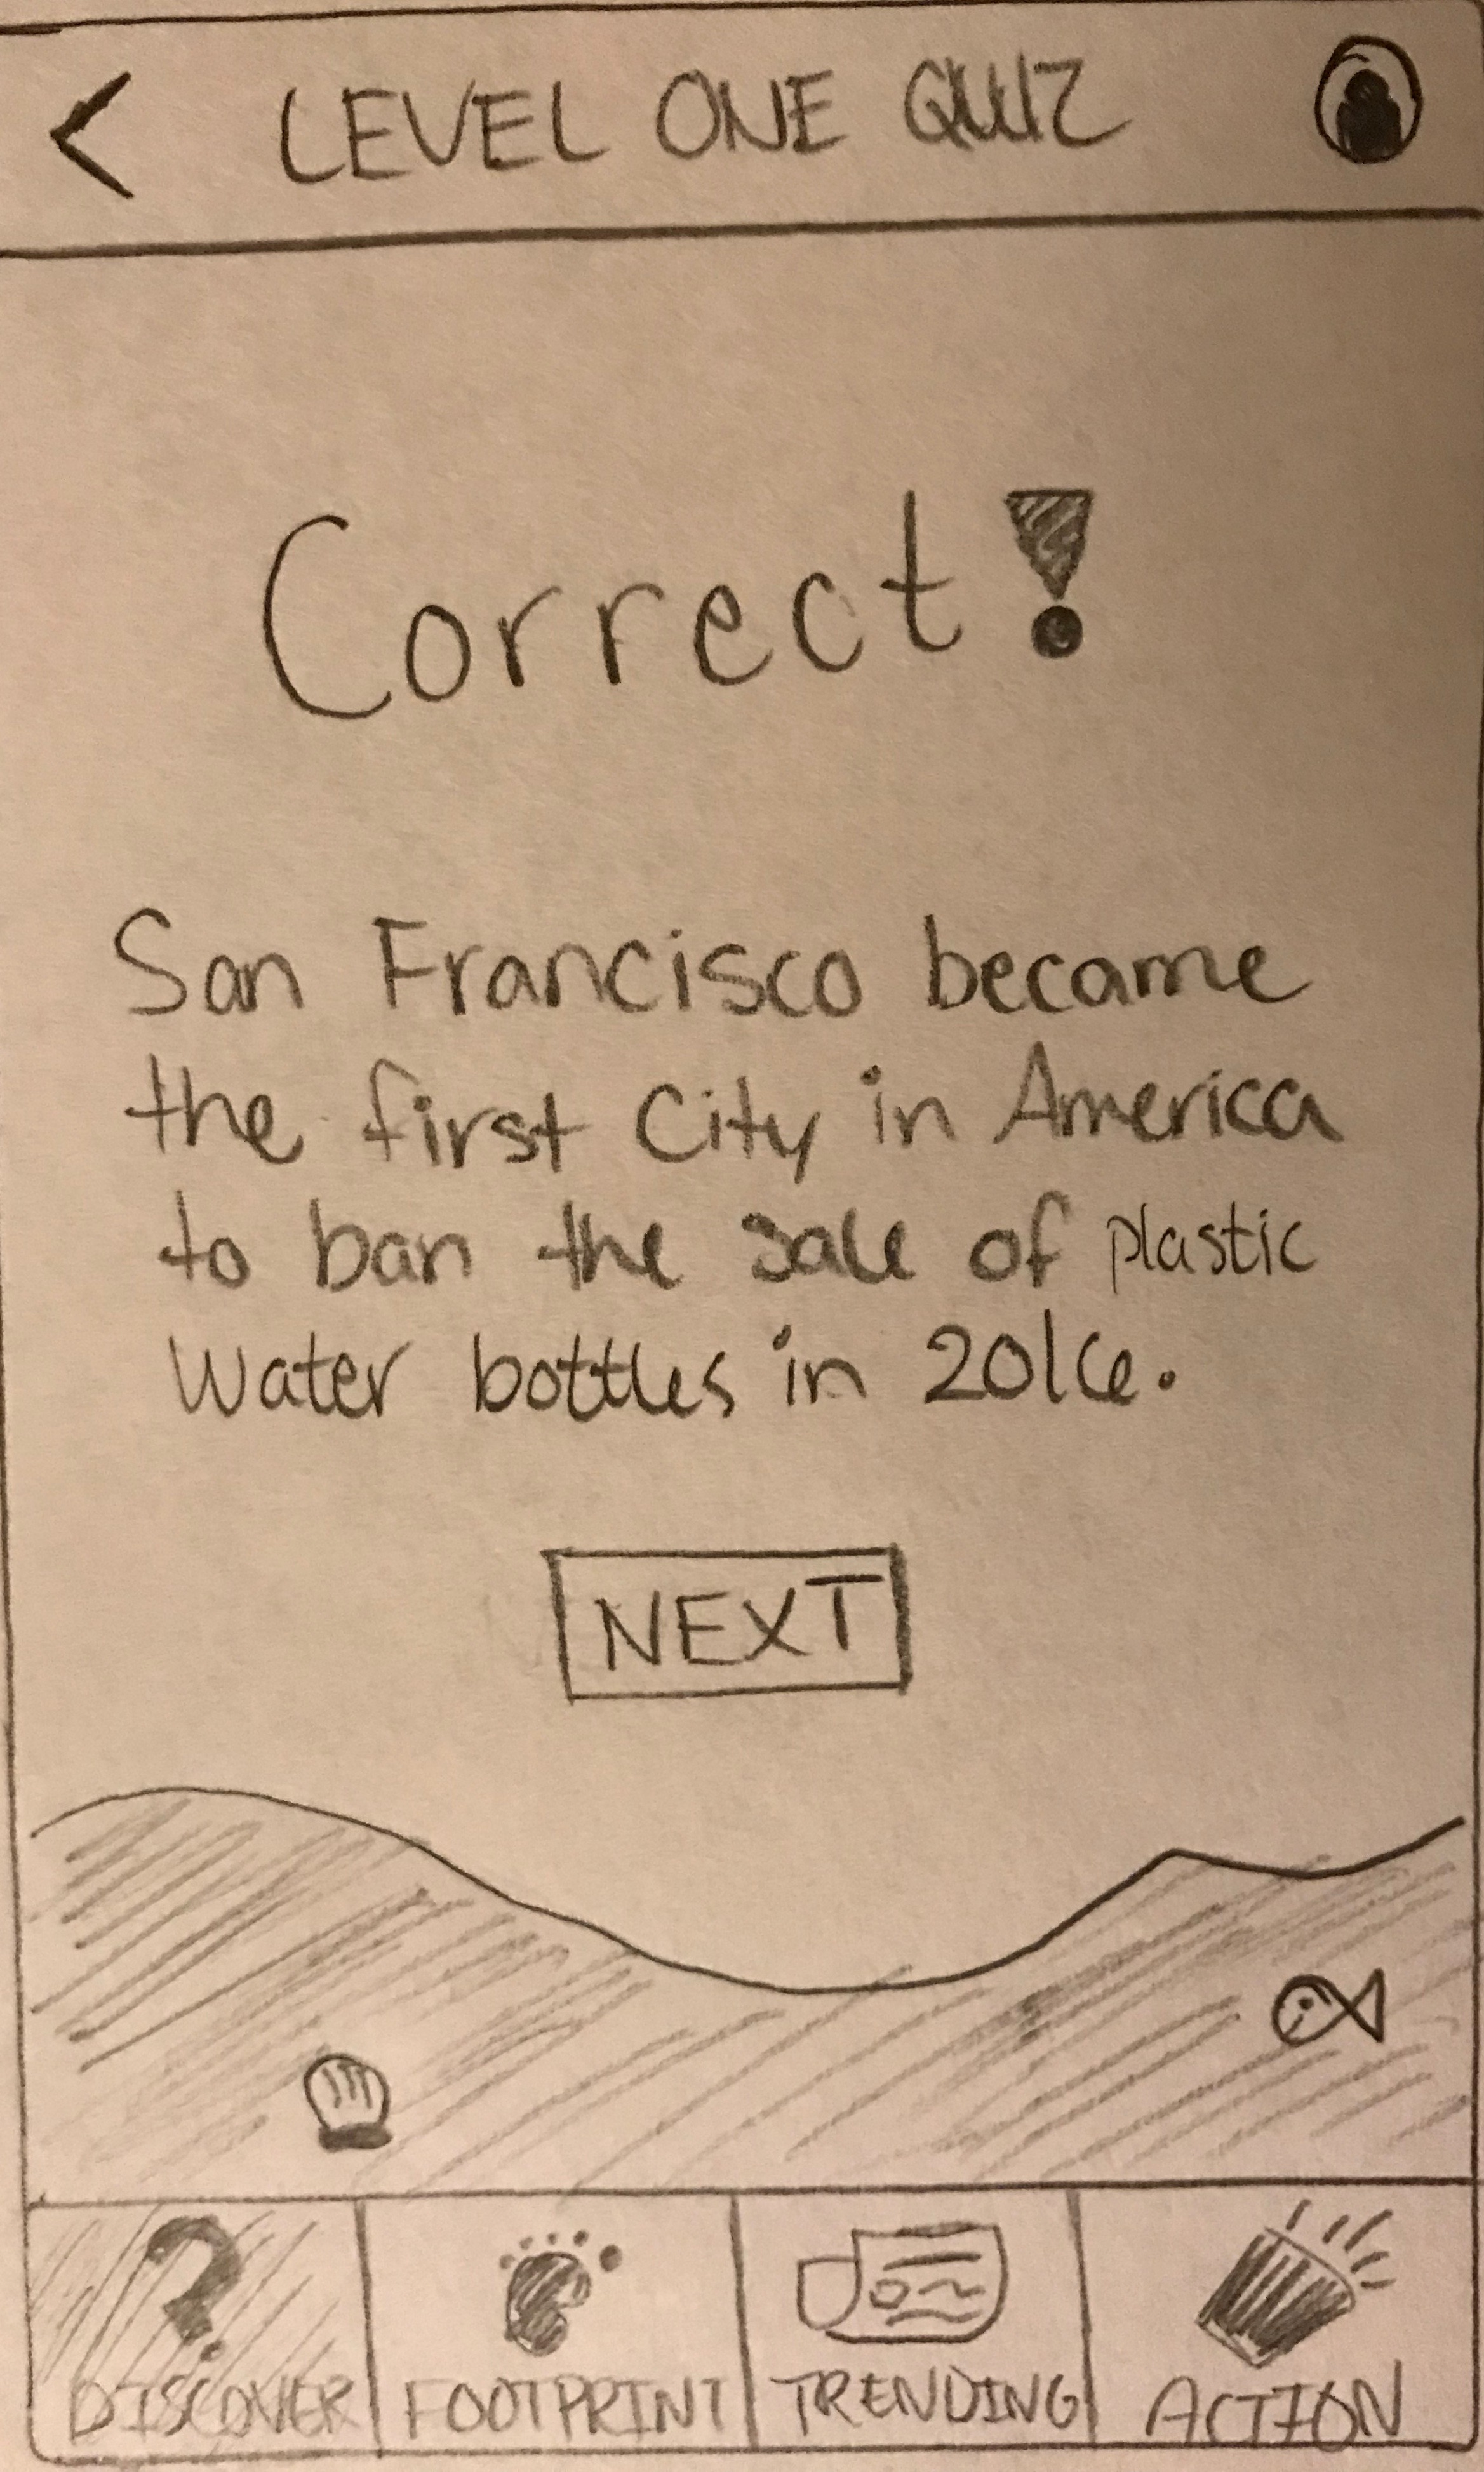 < LEVEL ONE QUIZ
Correct!
San Francisco became
the first City in America
to ban the sale of plastic
Water bottles in 2016.
NEXT
?
DISCOVER FOOTPRINT TRENDING ACTION